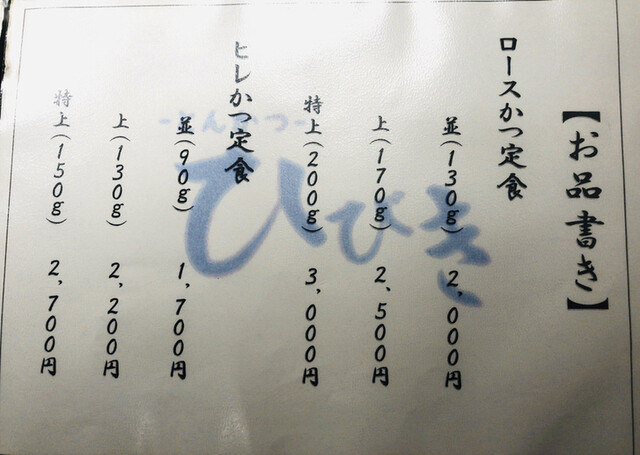 【お品書き】
ロースかつ定食
並(130g) 2,000円
上(170g) 2,500円
特上(200g) 3,000円
ヒレかつ定食
並(90g) 1,700円
上(130g) 2,200円
特上(150g) 2,700円
-とんかつ-
ひびき